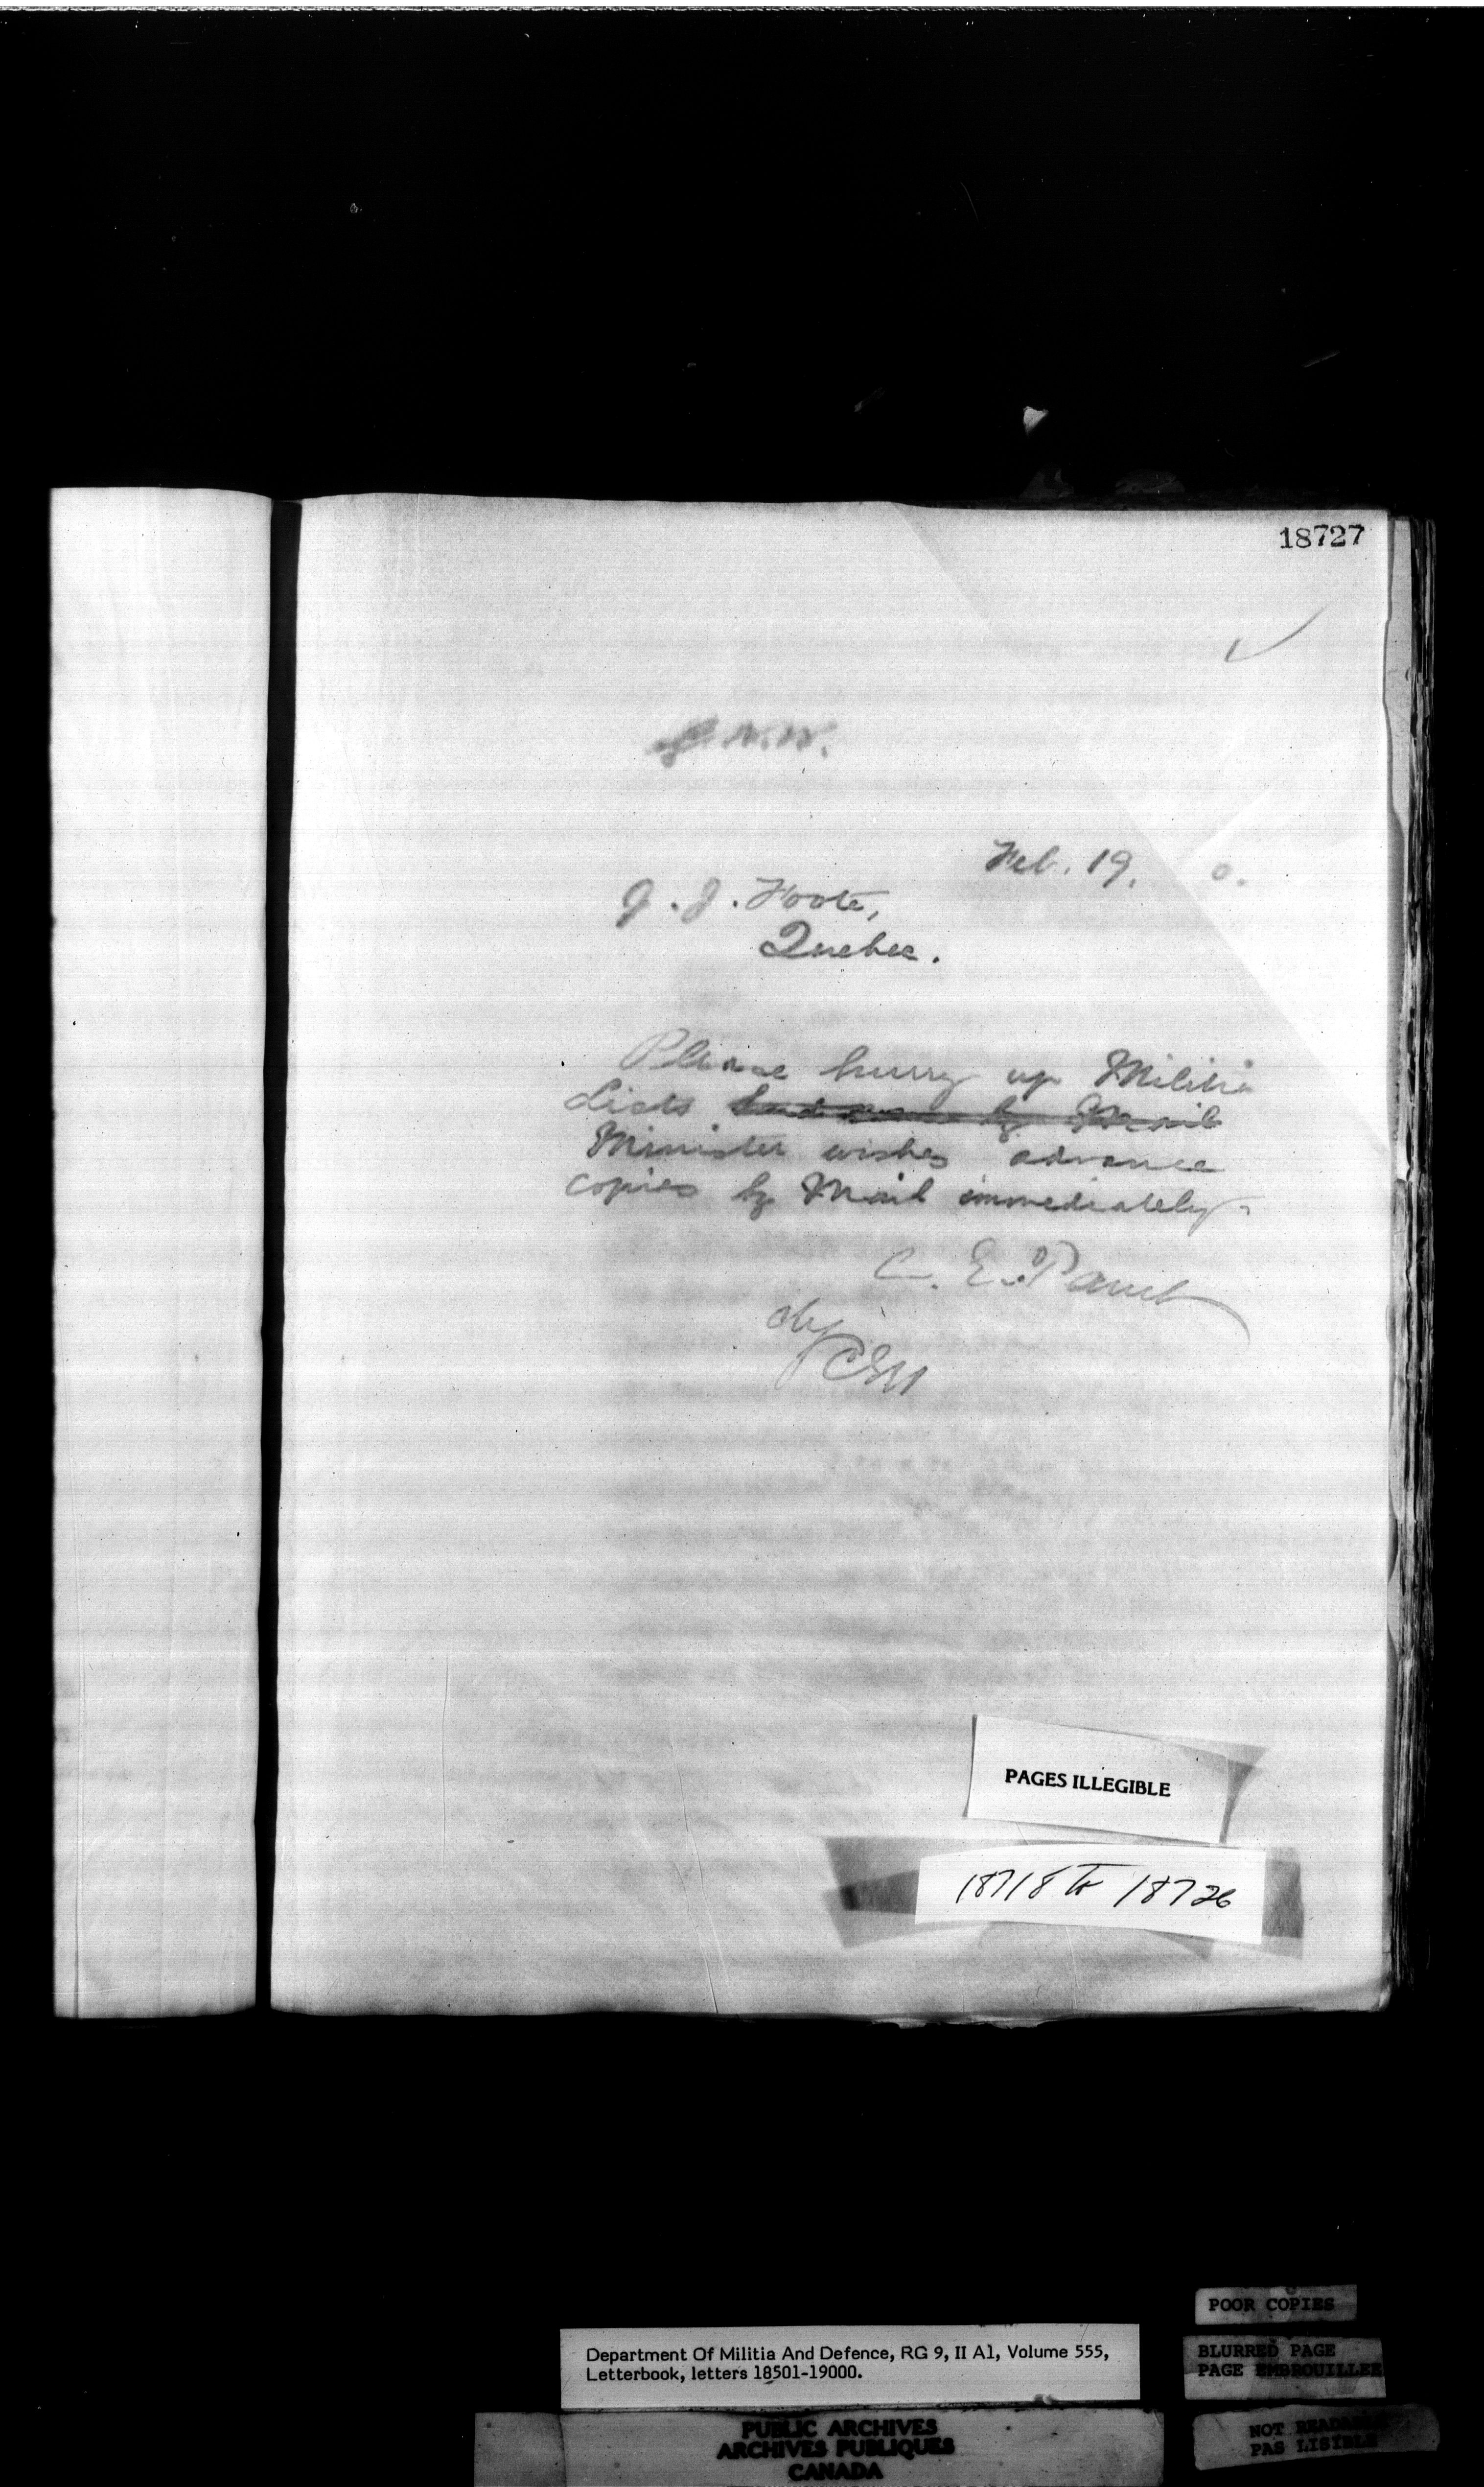 18727
G.N.W.
Feb. 19, 0.
J. J. Foote,
Quebec.
Please hurry up Militia
Lists by Mail
Minister wishes advance
copies by Mail immediately.
C. E. Panet
PAGES ILLEGIBLE
18718 to 18726
POOR COPIES
Department Of Militia And Defence, RG 9, II A1, Volume 555,
Letterbook, letters 18501-19000.
BLURRED PAGE
PAGE EMBROUILLEE
PUBLIC ARCHIVES
ARCHIVES PUBLIQUES
CANADA
NOT READABLE
PAS LISIBLE